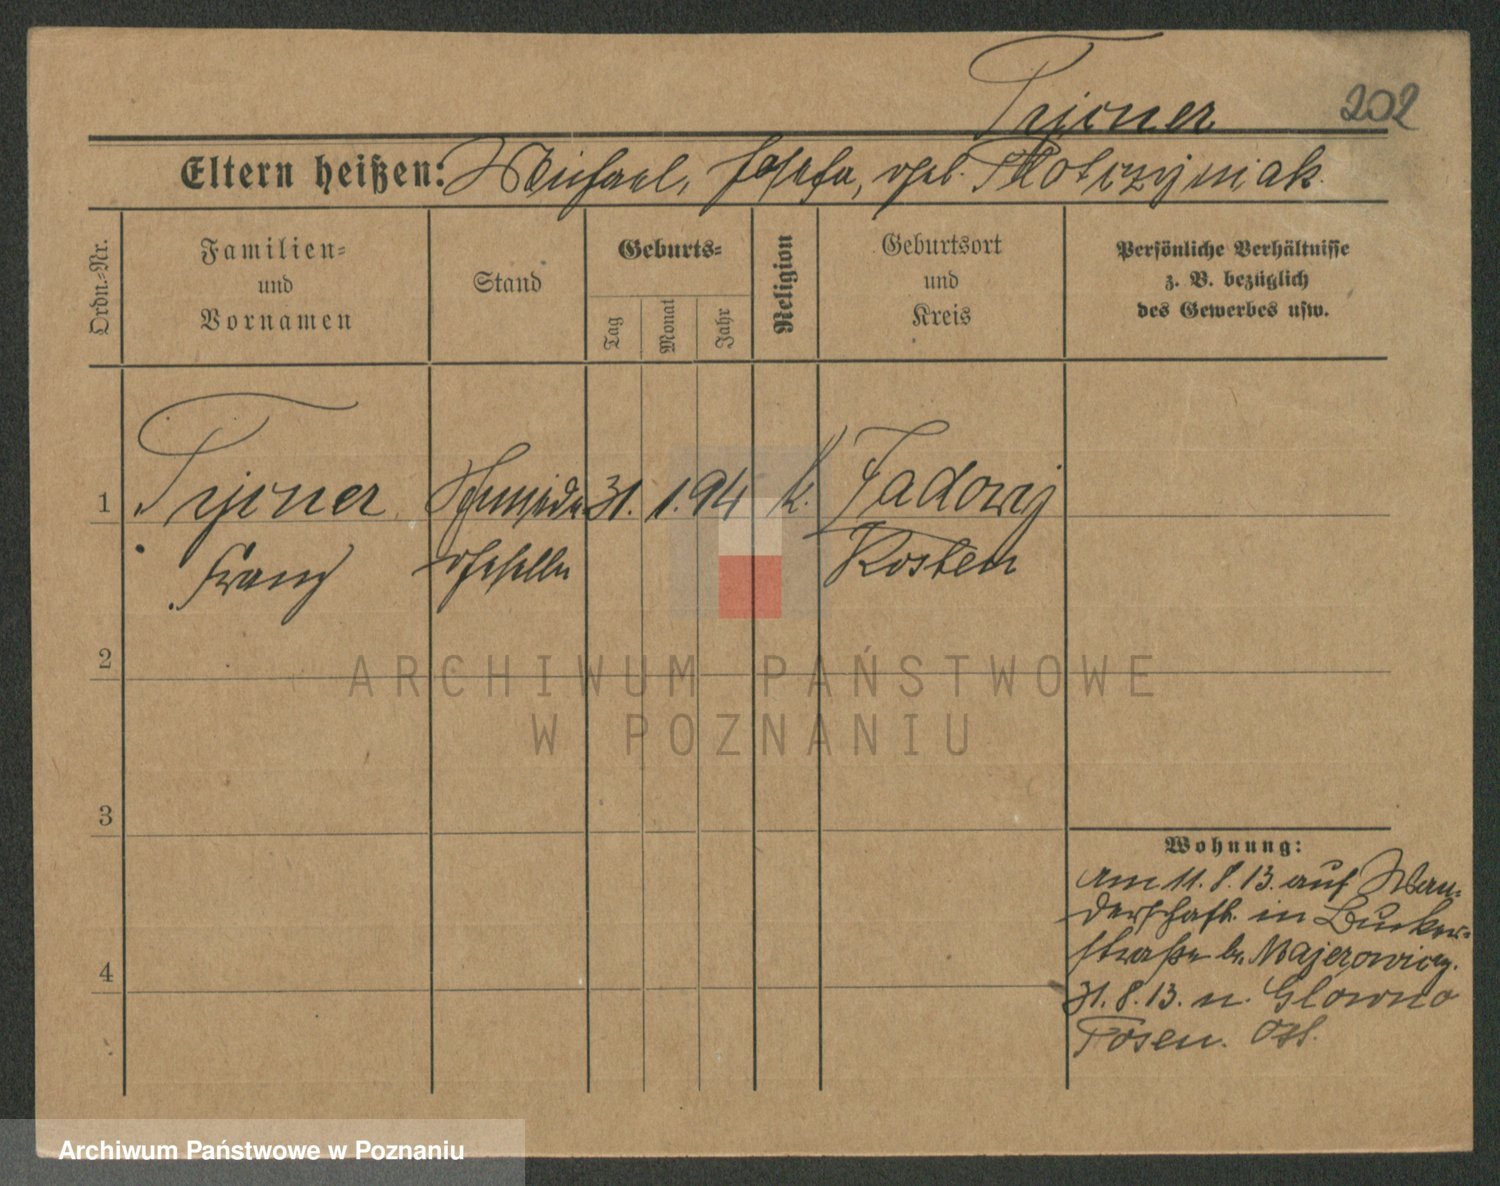 202
Eltern heißen: Michael, Josefa, geb.
Ordn.-Nr.
Familien- und Vornamen
Stand
Geburts-
Tag
Monat
Jahr
Religion
Geburtsort und Kreis
Persönliche Verhältnisse
z. B. bezüglich
des Gewerbes usw.
1
Franz
Schmiede
geselle
31. 1. 94
k.
Kosten
2
ARCHIWUM PAŃSTWOWE
W POZNANIU
3
4
Wohnung:
am 11. 8. 13. auf Wan-
derschaft. in Buker-
straße b. Majerowicz.
31. 8. 13. n. Glowno
Posen. Ost.
Archiwum Państwowe w Poznaniu